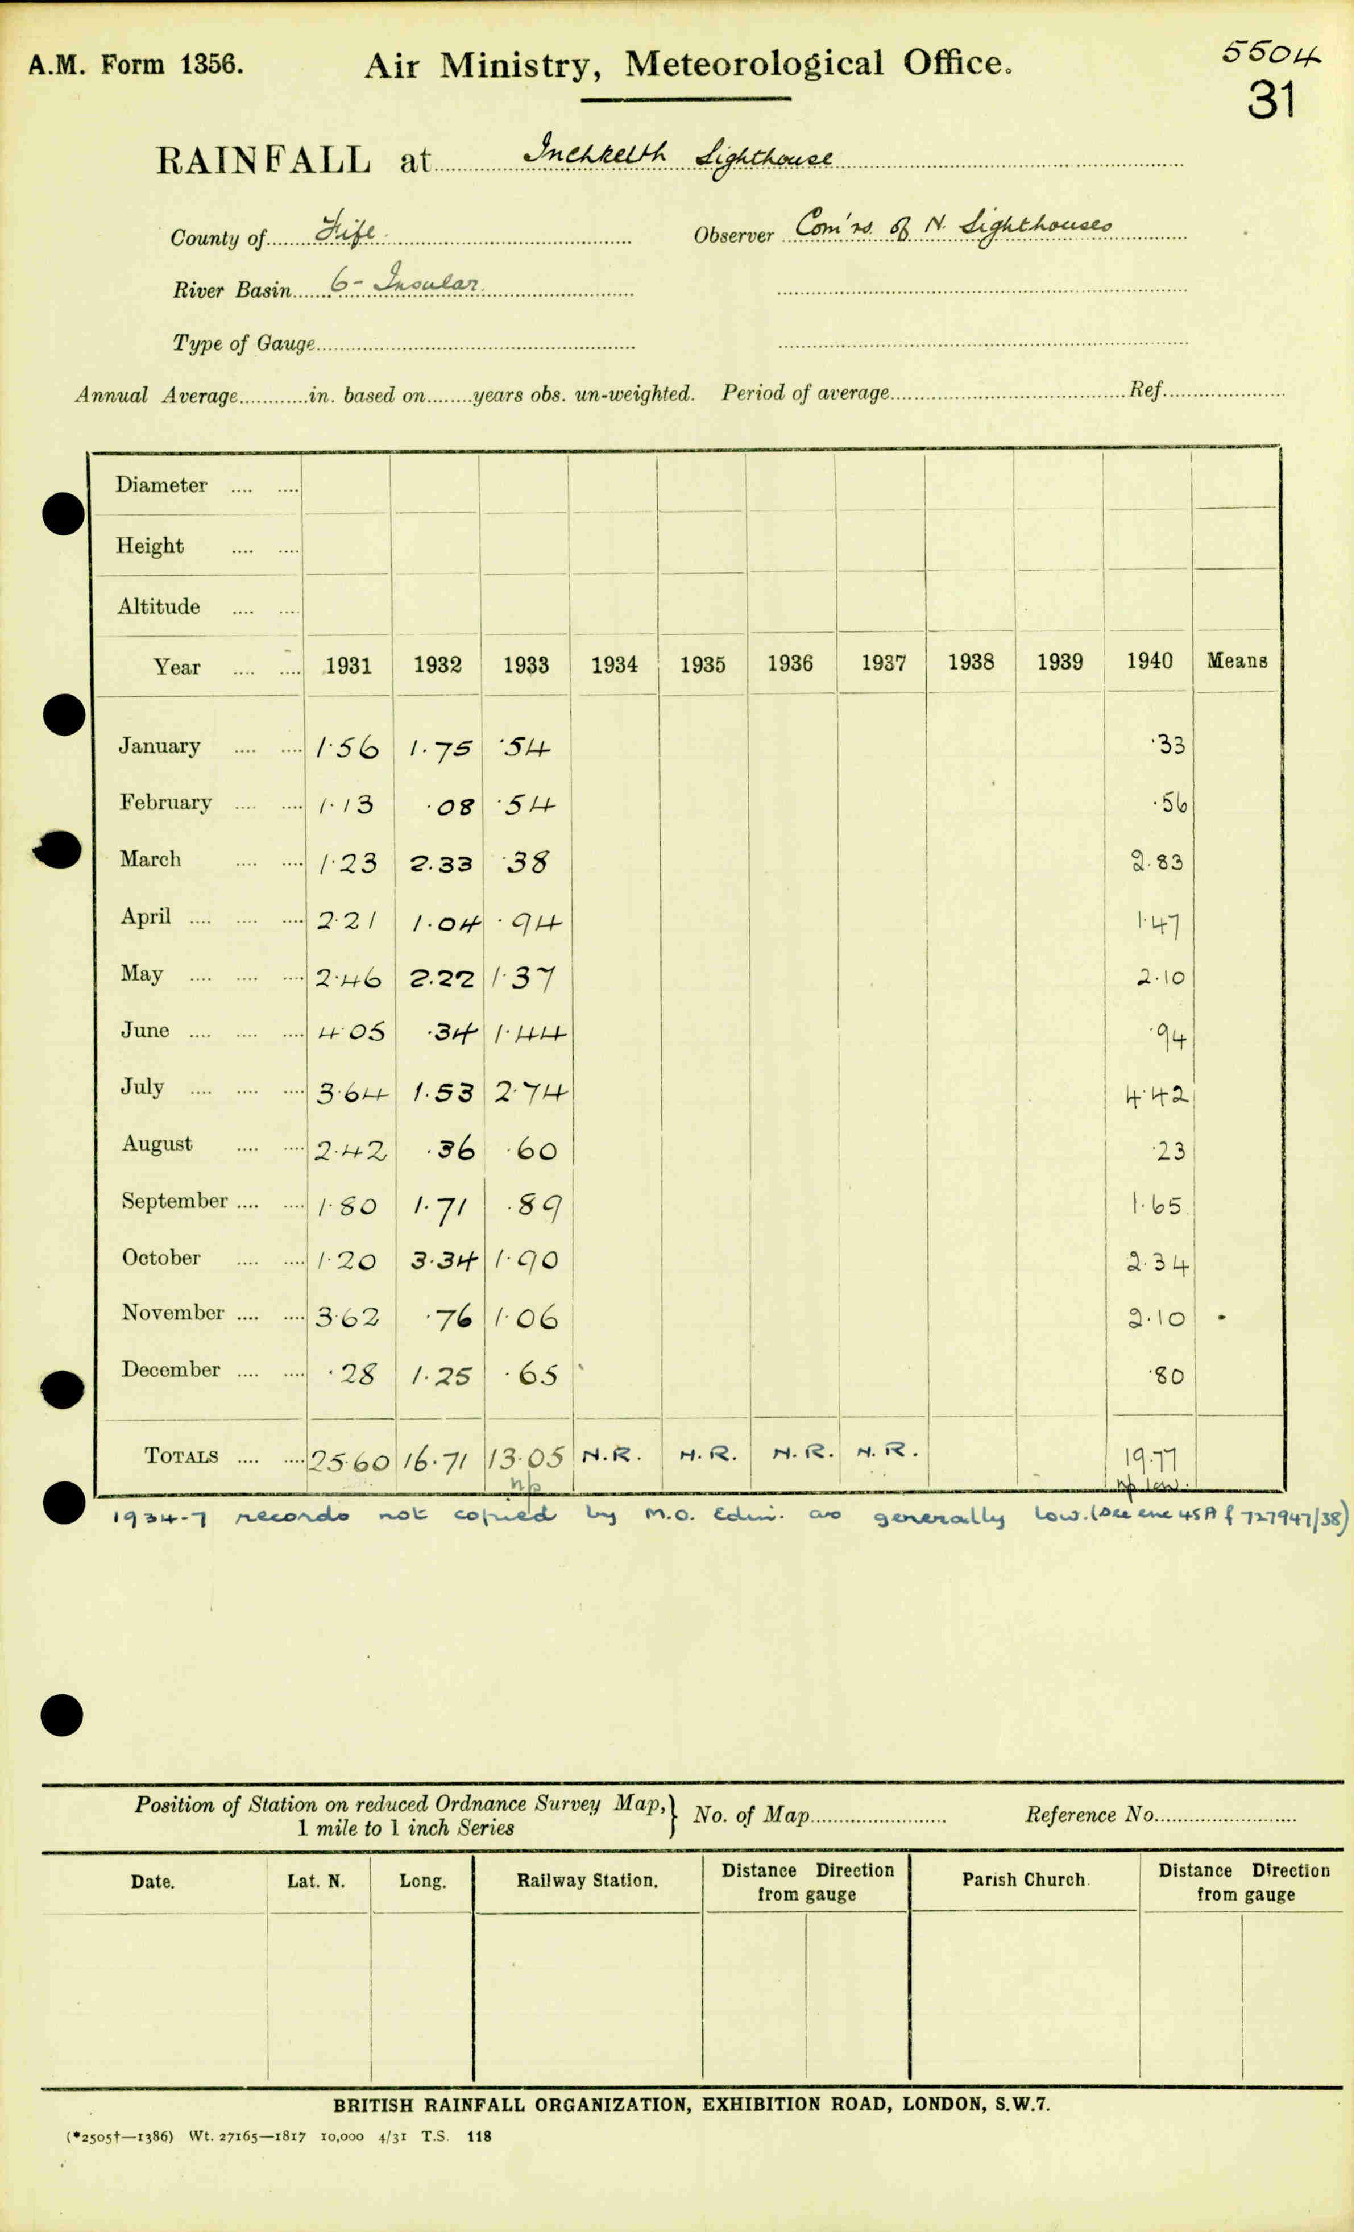 A.M. Form 1356.
Air Ministry, Meteorological Office.
5504
31
RAINFALL at Inchkeith Lighthouse
County of Fife
Observer Com'rs. of N. Lighthouses
River Basin 6- Insular
Type of Gauge
Annual Average in. based on years obs. un-weighted. Period of average Ref.
Diameter
Height
Altitude
Year 1931 1932 1933 1934 1935 1936 1937 1938 1939 1940 Means
January 1.56 1.75 .54 .33
February 1.13 .08 .54 .56
March 1.23 2.33 .38 2.83
April 2.21 1.04 .94 1.47
May 2.46 2.22 1.37 2.10
June 4.05 .34 1.44 .94
July 3.64 1.53 2.74 4.42
August 2.42 .36 .60 .23
September 1.80 1.71 .89 1.65
October 1.20 3.34 1.90 2.34
November 3.62 .76 1.06 2.10
December .28 1.25 .65 .80
TOTALS 25.60 16.71 13.05 N.R. N.R. N.R. N.R. 19.77
np np low.
1934-7 records not copied by M.O. Edin. as generally low. (See enc 45A f 727947/38)
Position of Station on reduced Ordnance Survey Map,} No. of Map Reference No.
1 mile to 1 inch Series
Date. Lat. N. Long. Railway Station. Distance Direction from gauge Parish Church. Distance Direction from gauge
BRITISH RAINFALL ORGANIZATION, EXHIBITION ROAD, LONDON, S.W.7.
(*2505†—1386) Wt. 27165—1817 10,000 4/31 T.S. 118